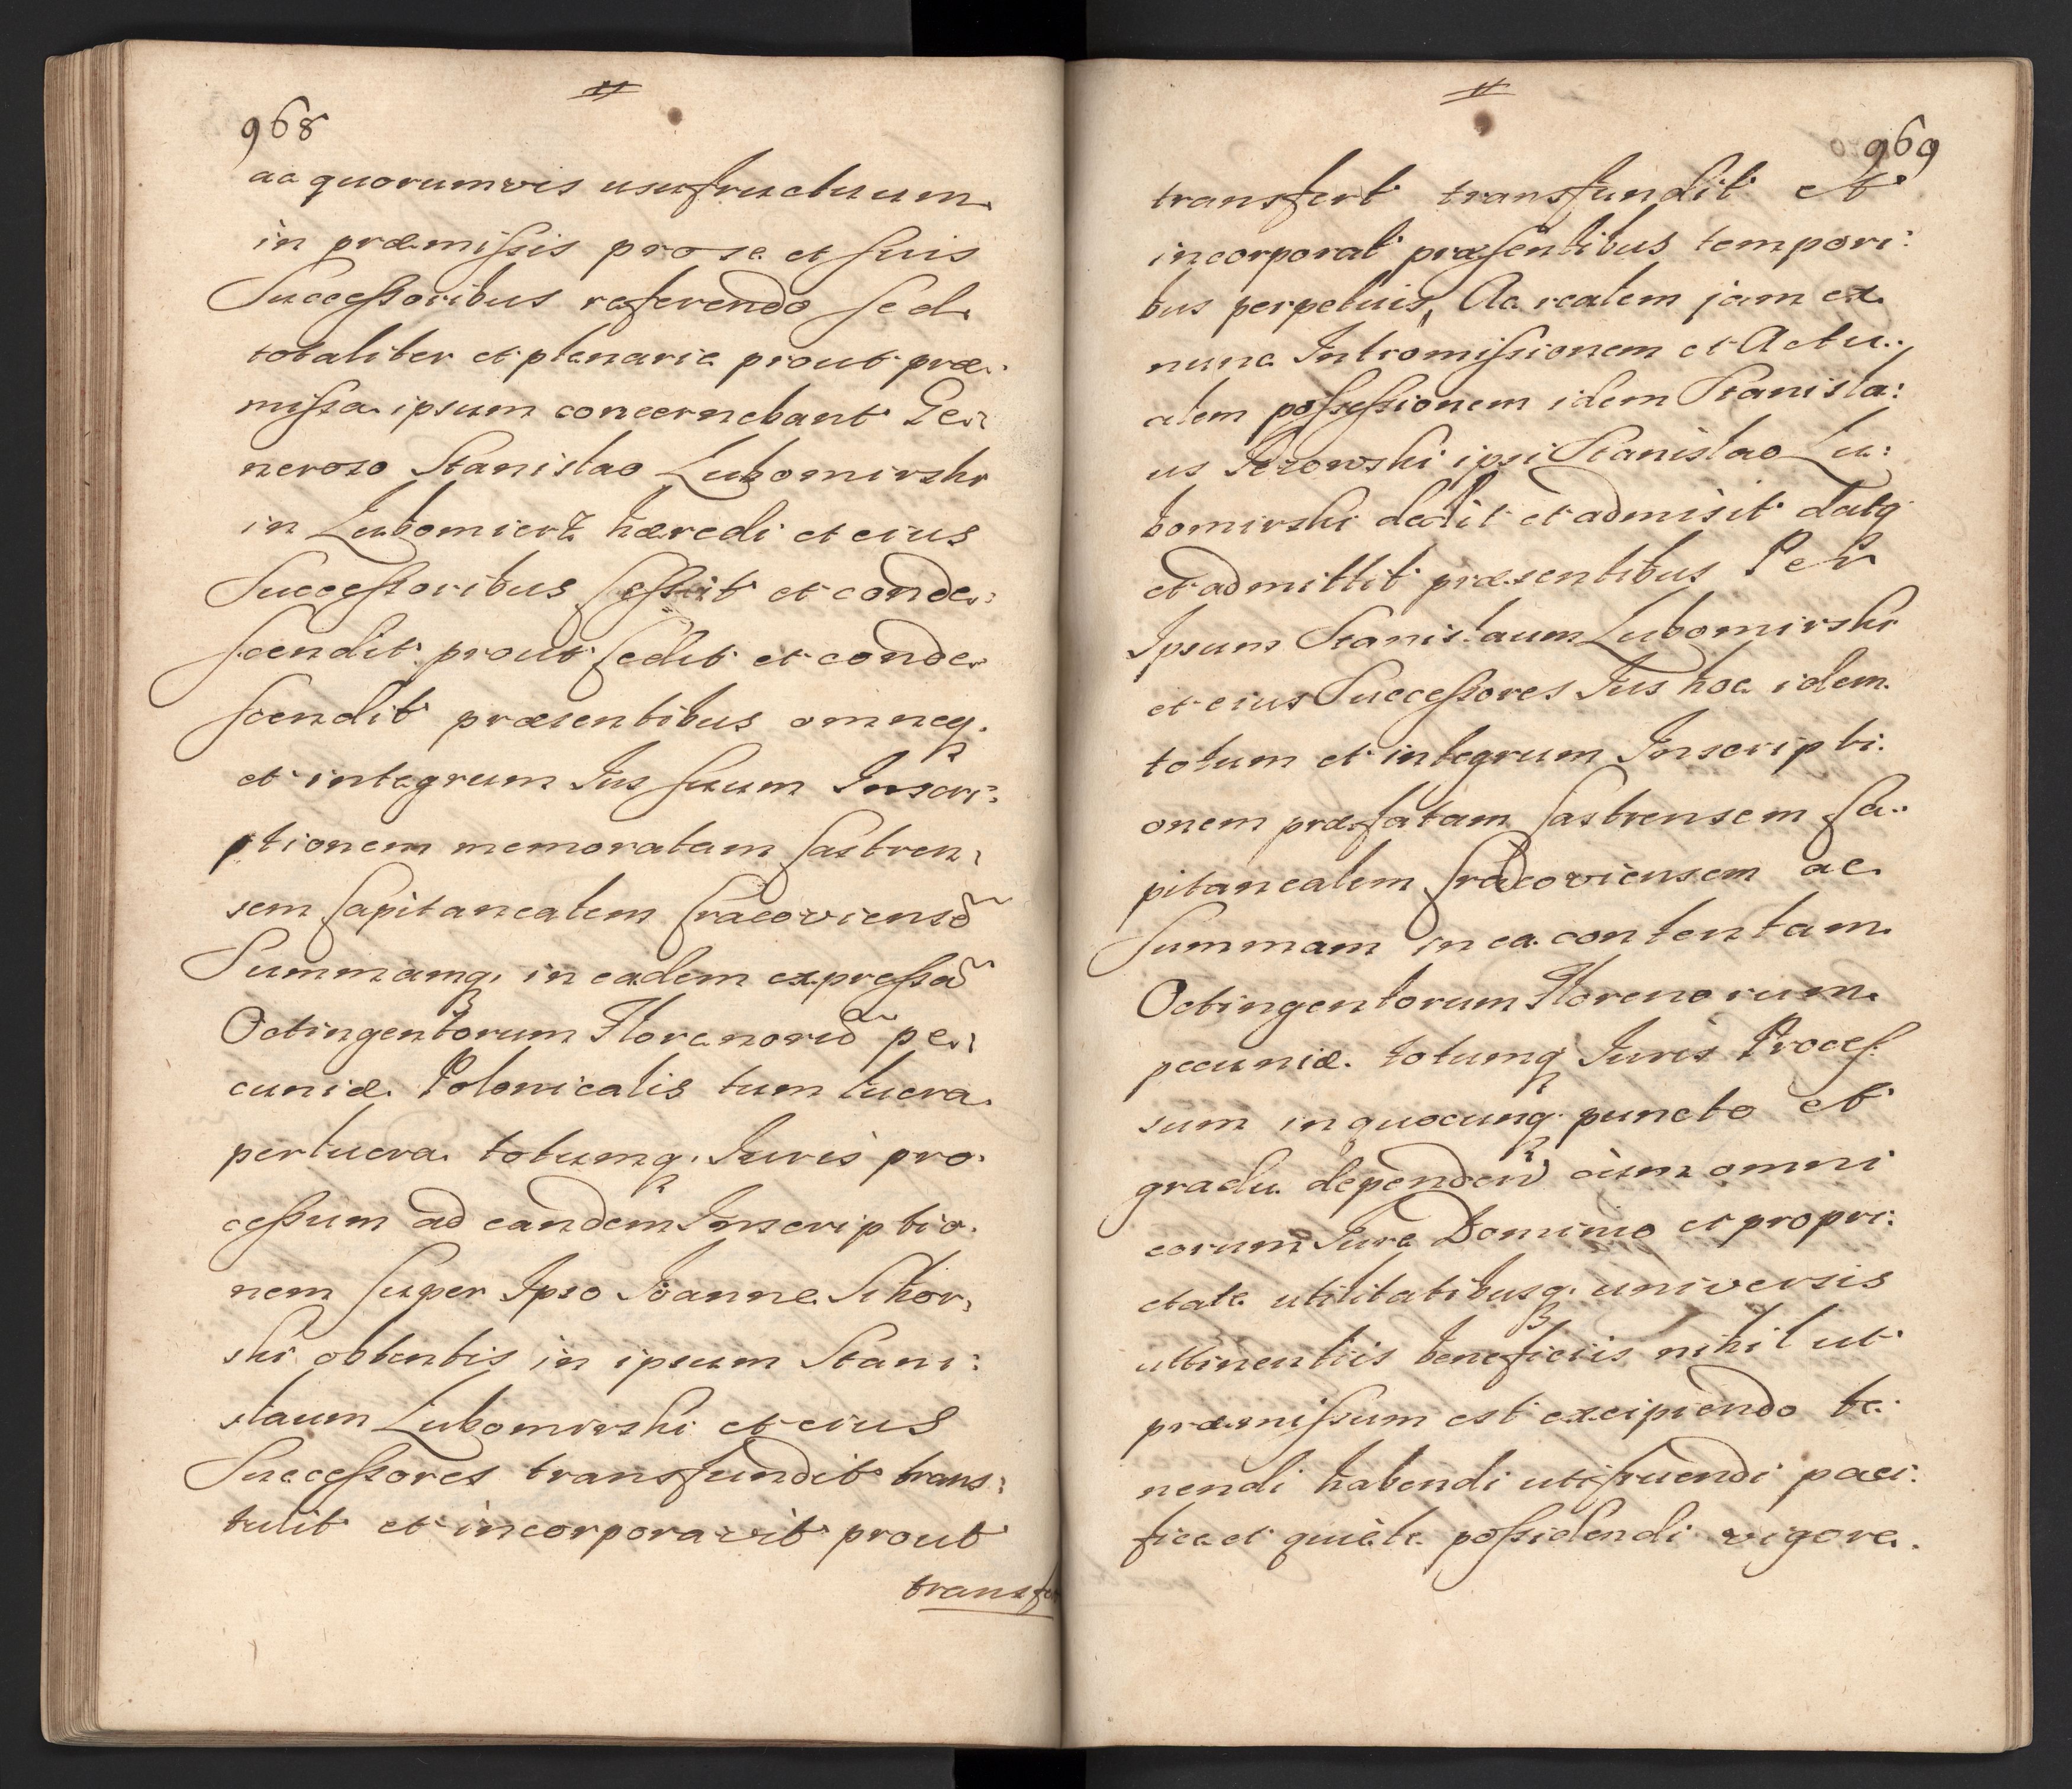 968
ac quorumvis usufructuum
in præmissis pro se et suis
Successoribus referendo sed
totaliter et plenarie prout præ:
missa ipsum concernebant Ge:
neroso Stanislao Lubomirski
in Lubomierz hæredi et eius
Successoribus cessit et conde:
scendit prout cedit et conde
scendit præsentibus omneq.
et integrum Jus suum Inscri:
ptionem memoratam Castren:
sem Capitanealem Cracoviensẽ
Summamq. in eadem expressã
Octingentorum Florenorũ pe:
cuniæ Polonicalis tum lucra
perlucra totumq. Juris pro:
cessum ad eandem Inscriptio:
nem super Ipso Joanne Sikor:
ski obtentis in ipsum Stani:
slaum Lubomirski et eius
Successores transfundit trans:
tulit et incorporavit prout
transfer
969
transfert transfundit et
incorporat præsentibus tempori:
bus perpetuis, Ac realem jam ex
nunc Intromissionem et Actu:
alem possessionem idem Stanisla:
us Jerowski ipsi Stanislao Lu:
bomirski dedit et admisit datq
et admittit præsentibus Per
Ipsum Stanislaum Lubomirski
et eius Successores Jus hoc idem
totum et integrum Inscripti:
onem præfatam Castrensem Ca:
pitanealem Cracoviensem ac
Summam in ea contentam
Octingentorum Florenorum
pecuniæ totumq Juris Proces:
sum in quocunq. puncto et
gradu dependen cum omni
eorum Jure Dominio et propri:
etate utilitatibusq. universis
attinentiis beneficiis nihil ut
præmissum est excipiendo te:
nendi habendi utifruendi paci:
fice et quiete possidendi vigore